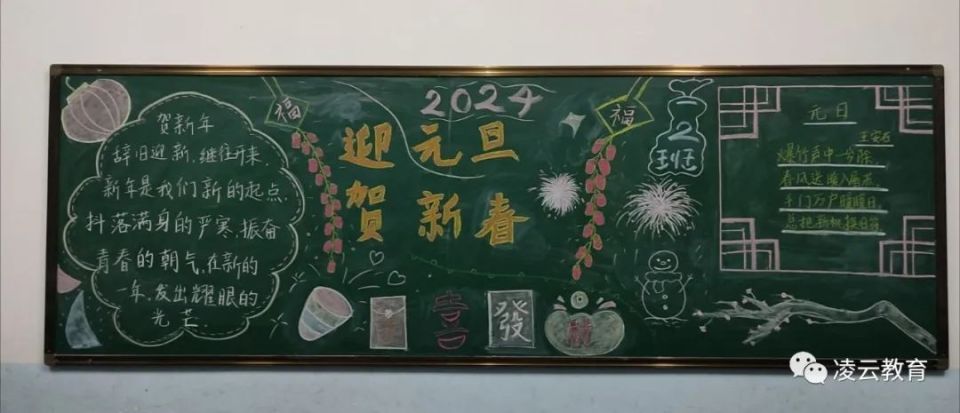 贺新年
辞旧迎新,继往开来,
新年是我们新的起点
抖落满身的严寒,振奋
青春的朝气,在新的
一年,发出耀眼的
光芒
福
2024
迎元旦
贺新春
福
喜
發
2
班
元日
王安石
爆竹声中一岁除
春风送暖入屠苏
千门万户曈曈日
总把新桃换旧符
凌云教育